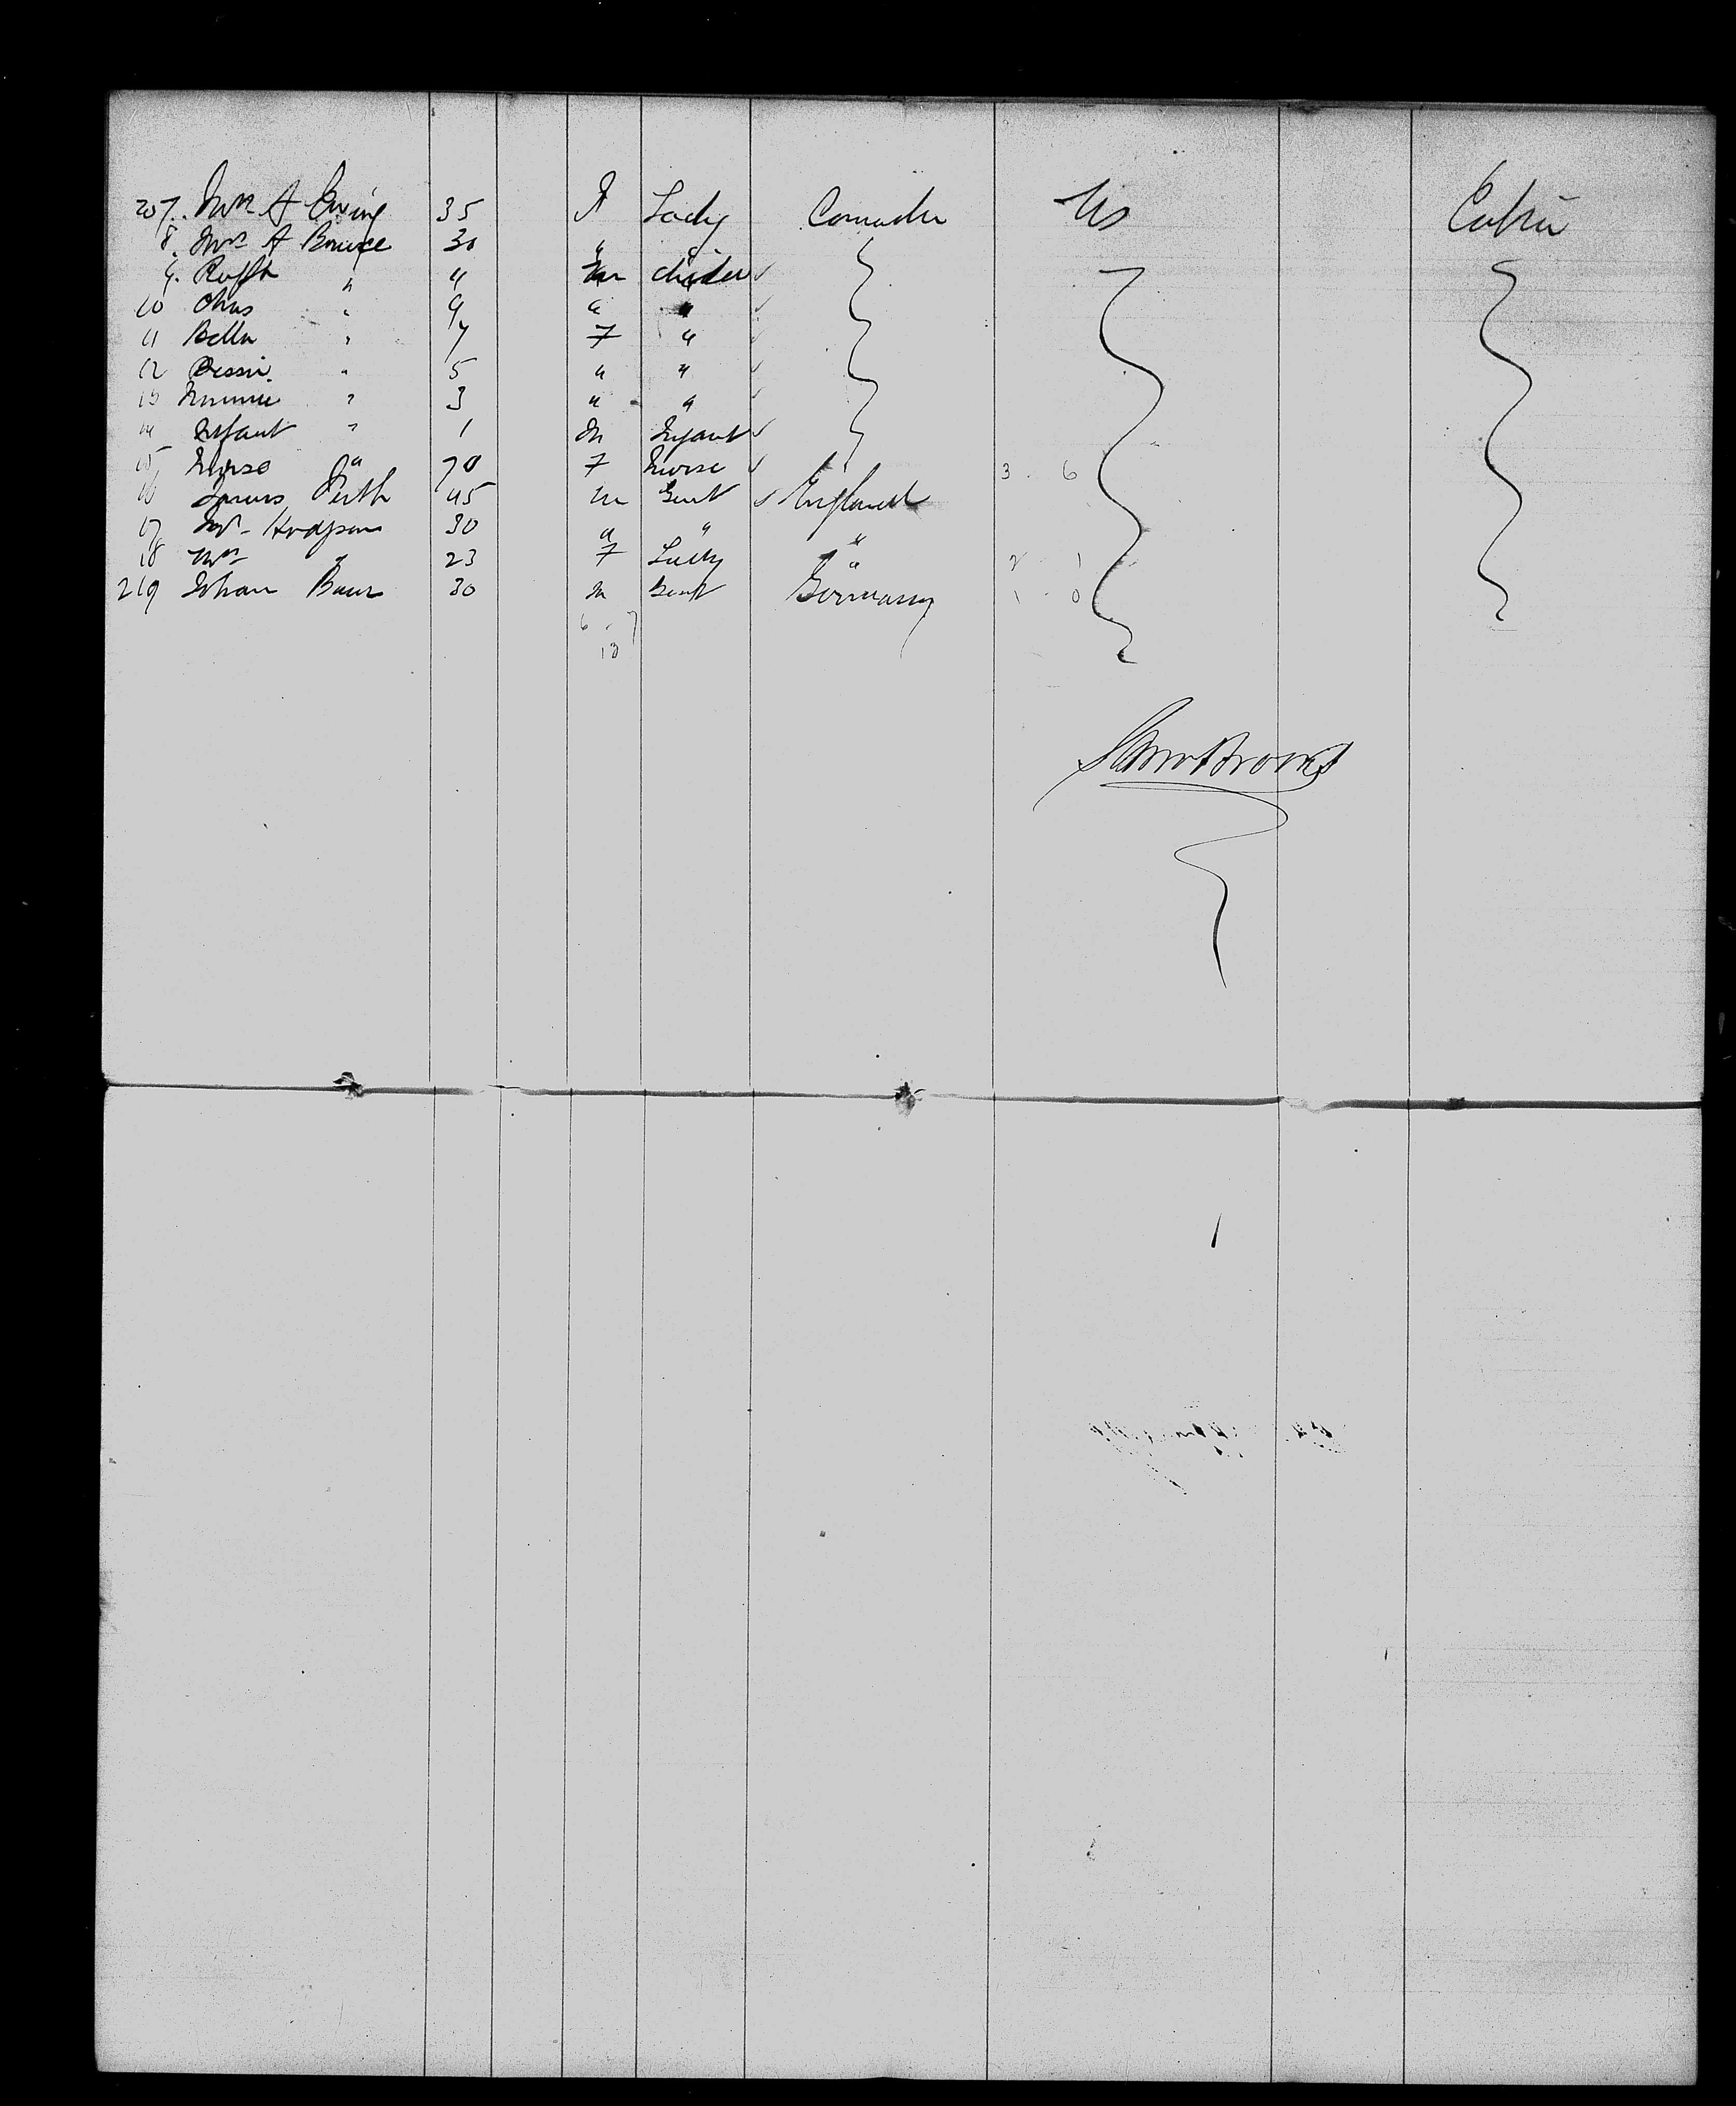 207. Mrs A Ewing 35 F Lady Canada US Cabin
8. Mrs A Bruce 30 "
9. Ralph " 11 m childer
10 Chas " 9 " "
11 Bella " 7 F "
12 Bessie " 5 " "
13 Minnie " 3 " "
14 Infant " 1 m Infant
15 Nurse " 70 F Nurse 3 . 6
16 James Perth 45 m Gent England
17 Mr Hodgson 30 " " "
18 Mrs " 23 F Lady " 2 1
219 Johan Baur 30 m Gent Germany 1 . 0
6 . 7
13
Saml Brooks